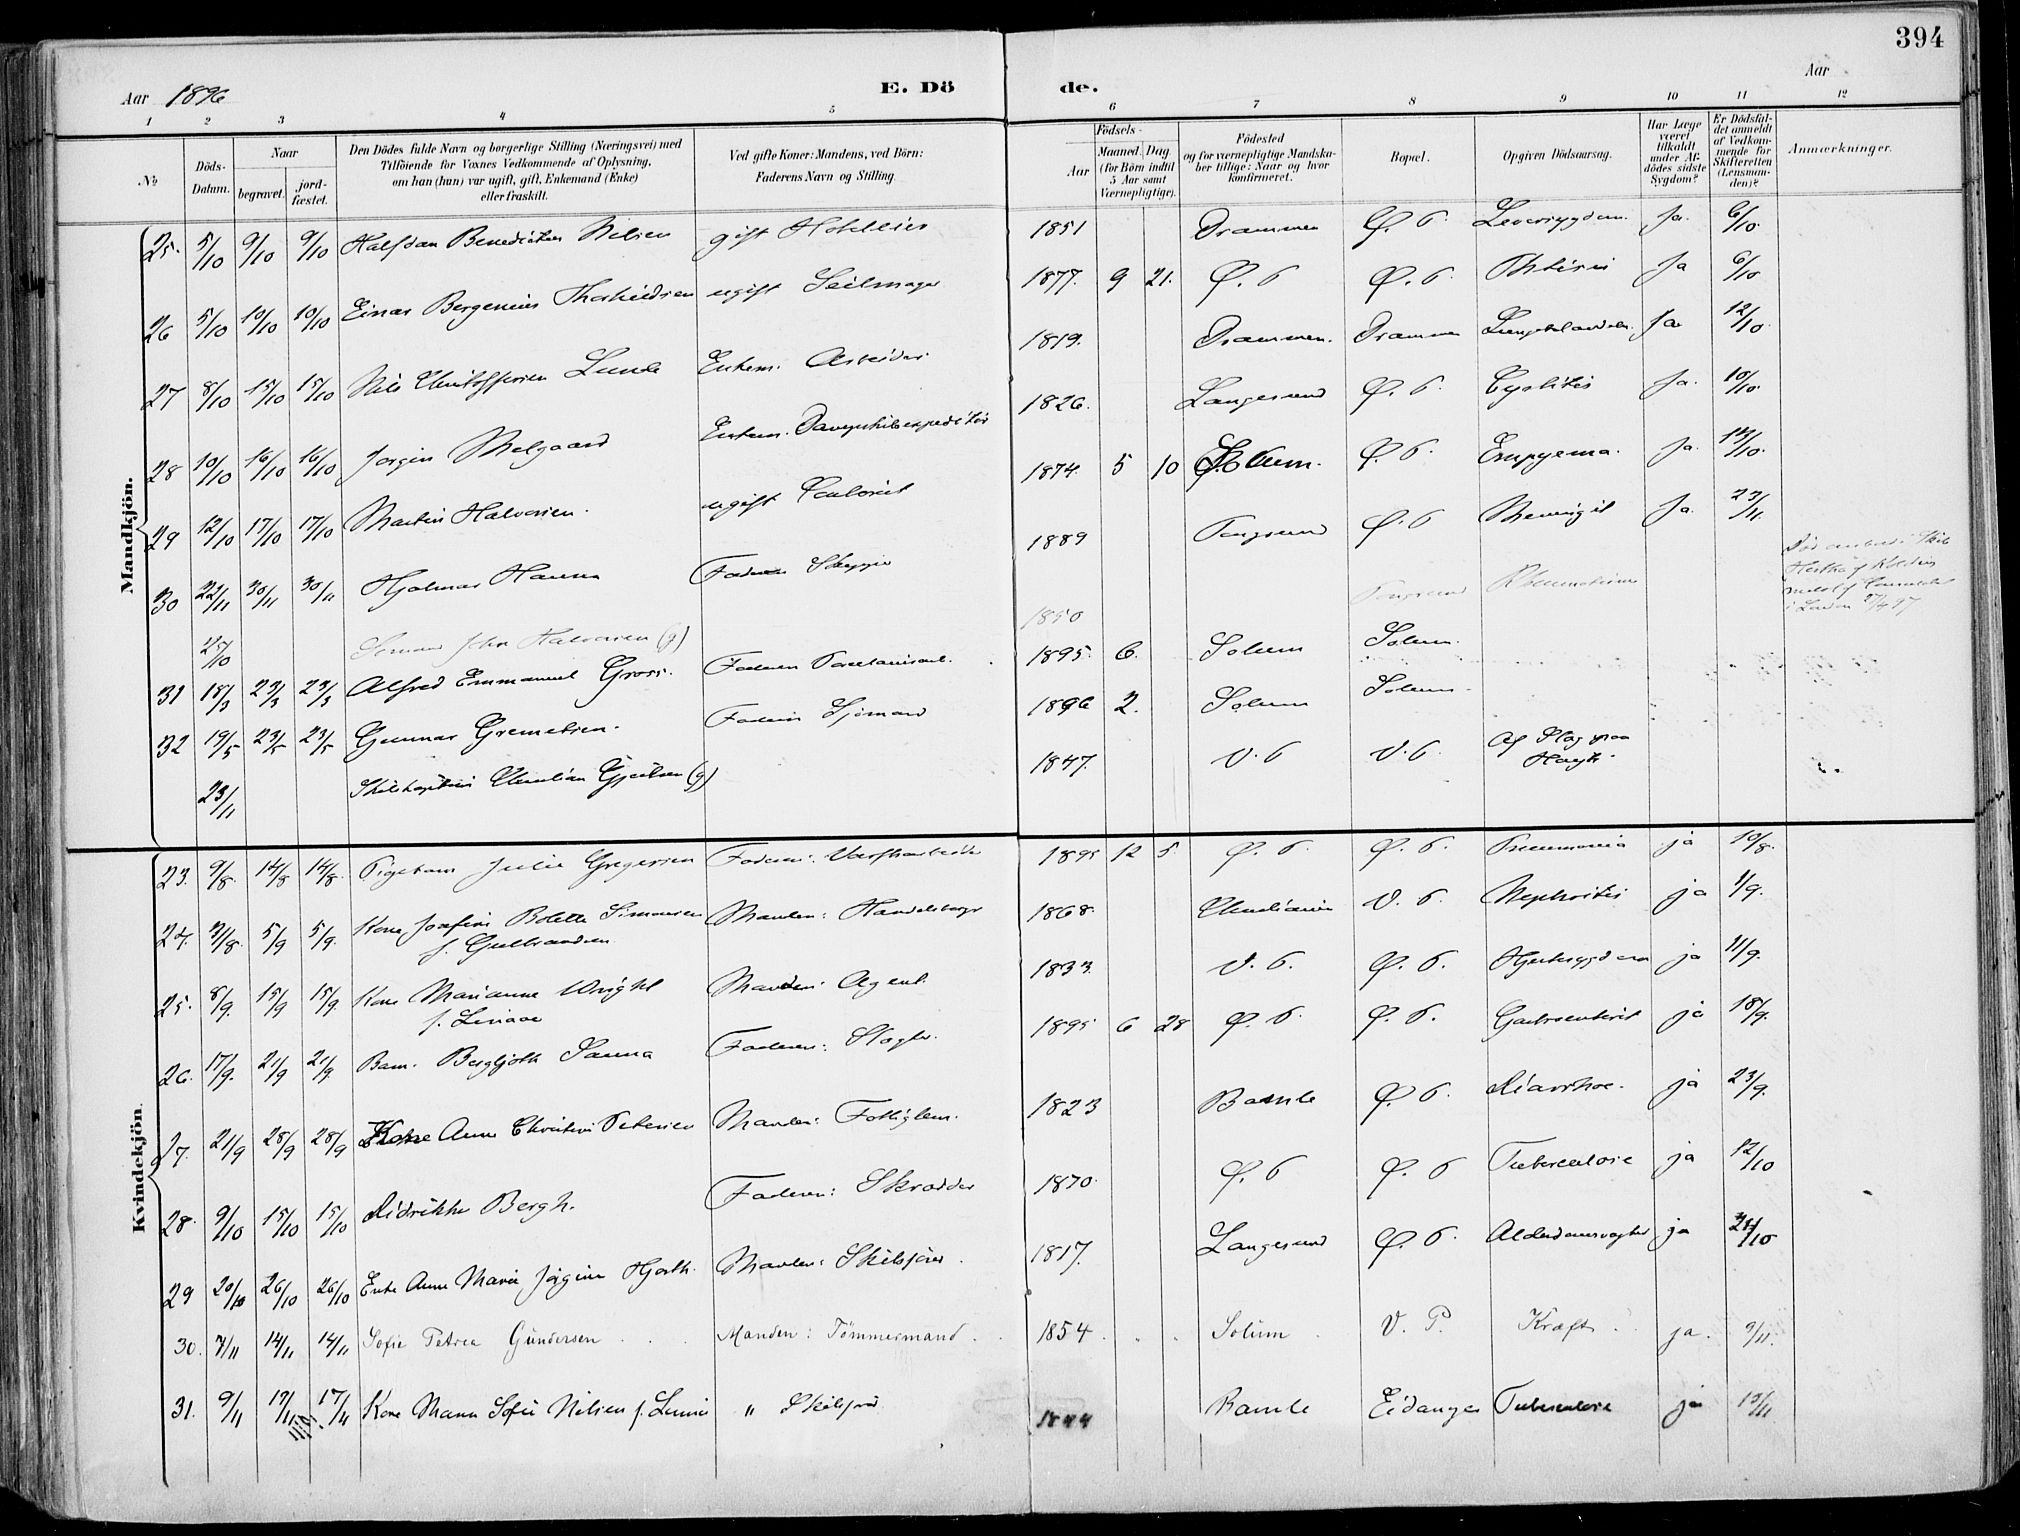 394
Aar 1896 E. Dö de. Aar
1 2 3 4 5 6 7 8 9 10 11 12
№ Döds-Datum. Naar begravet. jord-fæstet. Den Dödes fulde Navn og borgerlige Stilling (Næringsvei) med Tilföiende for Voxnes Vedkommende af Oplysning, om han (hun) var ugift, gift, Enkemand (Enke) eller fraskilt. Ved gifte Koner: Mandens, ved Börn: Faderens Navn og Stilling. Födsels- Aar Maaned. Dag. (for Börn indtil 5 Aar samt Værnepligtige). Födested og for værnepligtige Mandskaber tillige: Naar og hvor konfirmeret. Bopæl. Opgiven Dödsaarsag. Har Læge været tilkaldt under Afdödes sidste Sygdom? Er Dödsfaldet anmeldt af Vedkommende for Skifteretten (Lensmanden)? Anmærkninger.
Mandkjön.
25. 5/10 9/10 9/10 Halfdan Benedictus Nilsen gift 1851 Drammen Ø. P. Leversygdom. Ja. 6/10.
26 5/10 10/10 10/10 Einar Bergenius ugift Seilmager 1877. 9 21. Ø. P Ø. P. Phtisis Ja 6/10
27 8/10 15/10 15/10 Nils Christoffersen Lunde Enkem. Arbeider. 1819. Drammen. Drammen Ja 12/10.
28 10/10 16/10 16/10 Jørgen Melgaard Enkem. Dampskibsexpeditør 1826. Langesund Ø. P. Cystitis Ja. 10/10.
29 12/10 17/10 17/10 Martin Halvorsen. ugift 1874. 5 10 Solum. Ø. P. Empyema. Ja. 14/10.
30 22/11 30/11 30/11 Hjalmar Hansen Faderen Skipper 1889 Tangesund Ø. P Meningit Ja. 23/11.
27/10 Sømand John Halvorsen (g) 1850 Rheumatisme
31 18/3 23/3 23/3 Alfred Emmanuel Gross. Faderen Porcelainsarb. 1895. 6. Solum Solum.
32 19/5 23/5 23/5 Gunnar Gremetsen. Faderen Sjømand 1896 2. Solum Solum.
23/11 Skibskaptein Christian Gjertsen (g) 1847. V. P V. P. Af Slag paa
Kvindekjön.
23. 9/8. 14/8 14/8. Pigebarn Julie Gregersen Faderen: Værftsarbeider 1895 12 5. Ø. P. Ø. P. Pneumonia ja 10/8.
24. 31/8. 5/9 5/9. Kone Josefine Bolette Simonsen Manden: Handelsborger 1868. Christiania V. P. Nephritis ja 1/9.
f. Gulbrandsen
25. 8/9. 15/9 15/9. Kone Marianne Wright Manden: Agent. 1833. V. P. Ø. P. Hjertesygdom ja 11/9.
26. 17/9. 21/9 21/9. Barn. Bergljoth Sanna Faderen: Slagter. 1895 6 28 Ø. P. Ø. P. Gastroenterit ja 18/9.
27. 21/9 28/9 28/9 Kone Anne Christine Petersen Manden: Fattiglem. 1823 Bamle Ø. P. Diarrhoe. ja 23/9.
28. 9/10 15/10 15/10 Didrikke Bergh. Faderen: Skrædder 1870. Ø. P Ø. P Tuberculose ja 12/10
29 20/10 26/10 26/10 Enke Anne Marie Jørgine Hjorth. Manden: Skibsfører. 1817. Langesund Ø. P. Alderdomssvaghed ja 21/10
30. 7/11 14/11 14/11 Sofie Petrea Gundersen Manden: Tömmermand 1854 Solum V. P. Kræft ja. 9/11.
31. 9/11 17/11 17/11 Kone Maren Sofie Nilsen " 1844 Bamle Eidanger Tuberculose ja 13/11